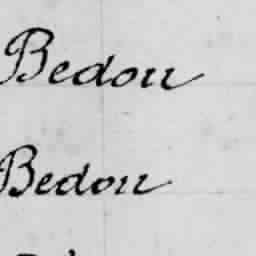 Bedou
Bedou